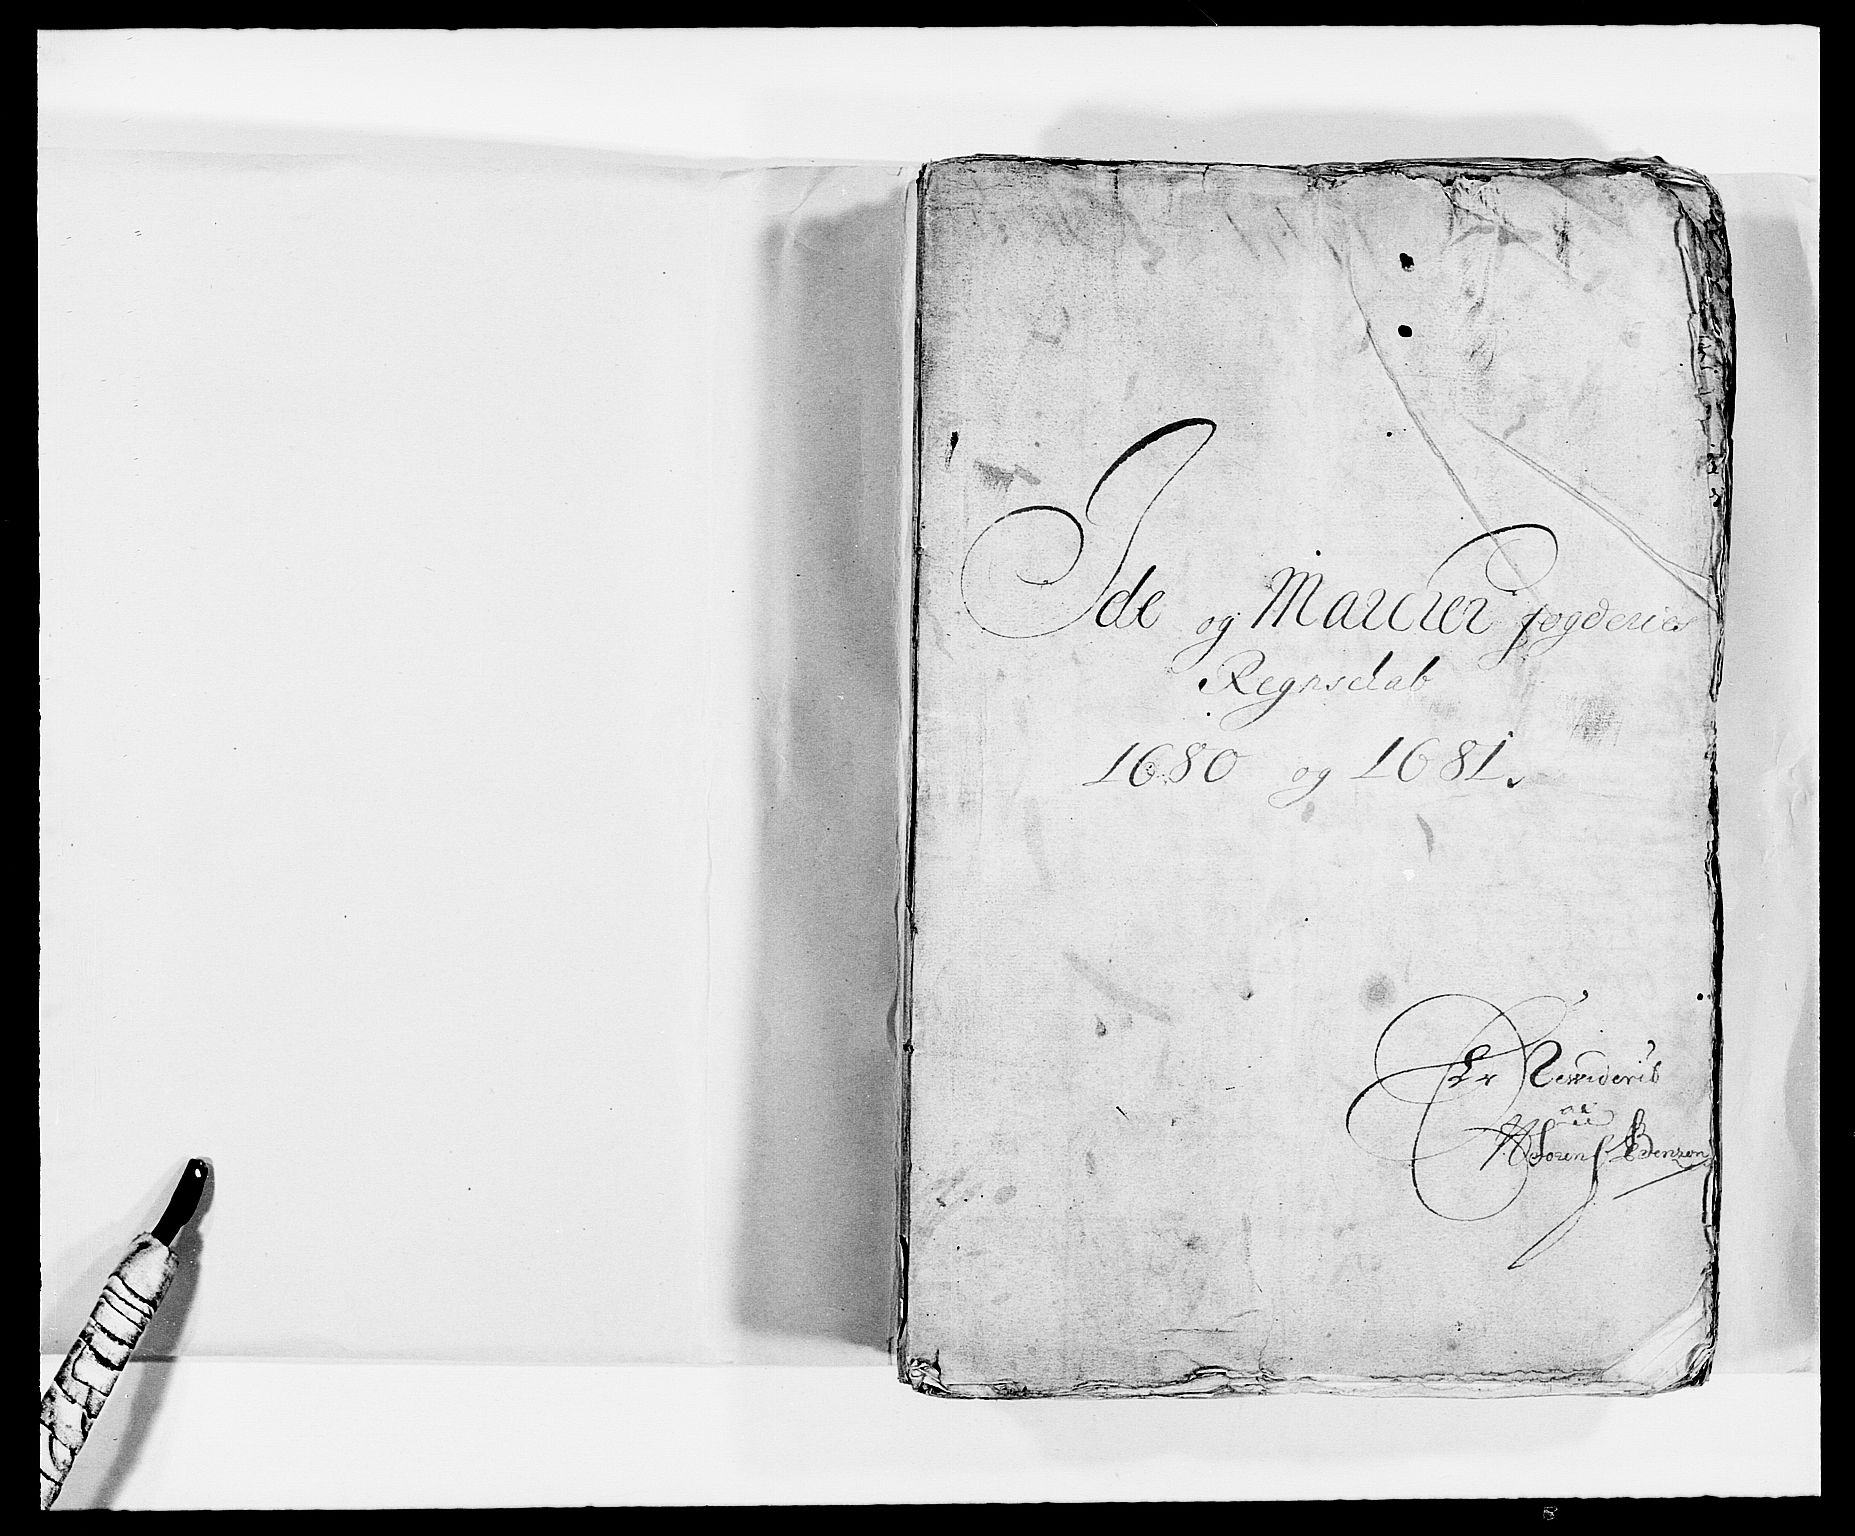 Ide og Marcker fogderies
Regnschab
1680 og 1681.
Er Revideris
aff
Sören Benzon